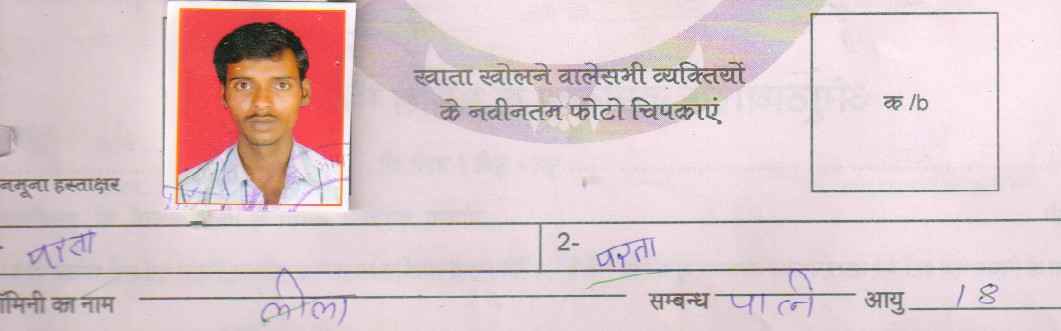 खाता खोलने वालेसभी व्यक्तियों
के नवीनतम फोटो चिपकाएं
क /b
नमूना हस्ताक्षर
परता 2- परता
नॉमिनी का नाम लीला सम्बन्ध पत्नि आयु 18